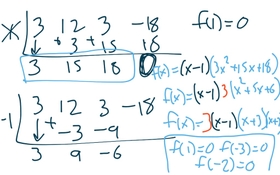 1 | 3 12 3 -18 f(1)=0
↓ + 3 + 15 18
3 15 18 0 f(x)=(x-1)(3x²+15x+18)
f(x)=(x-1)3(x²+5x+6)
-1 | 3 12 3 -18
↓ + -3 -9 f(x)=3(x-1)(x+3)(x+2)
3 9 -6 f(1)=0 f(-3)=0
f(-2)=0